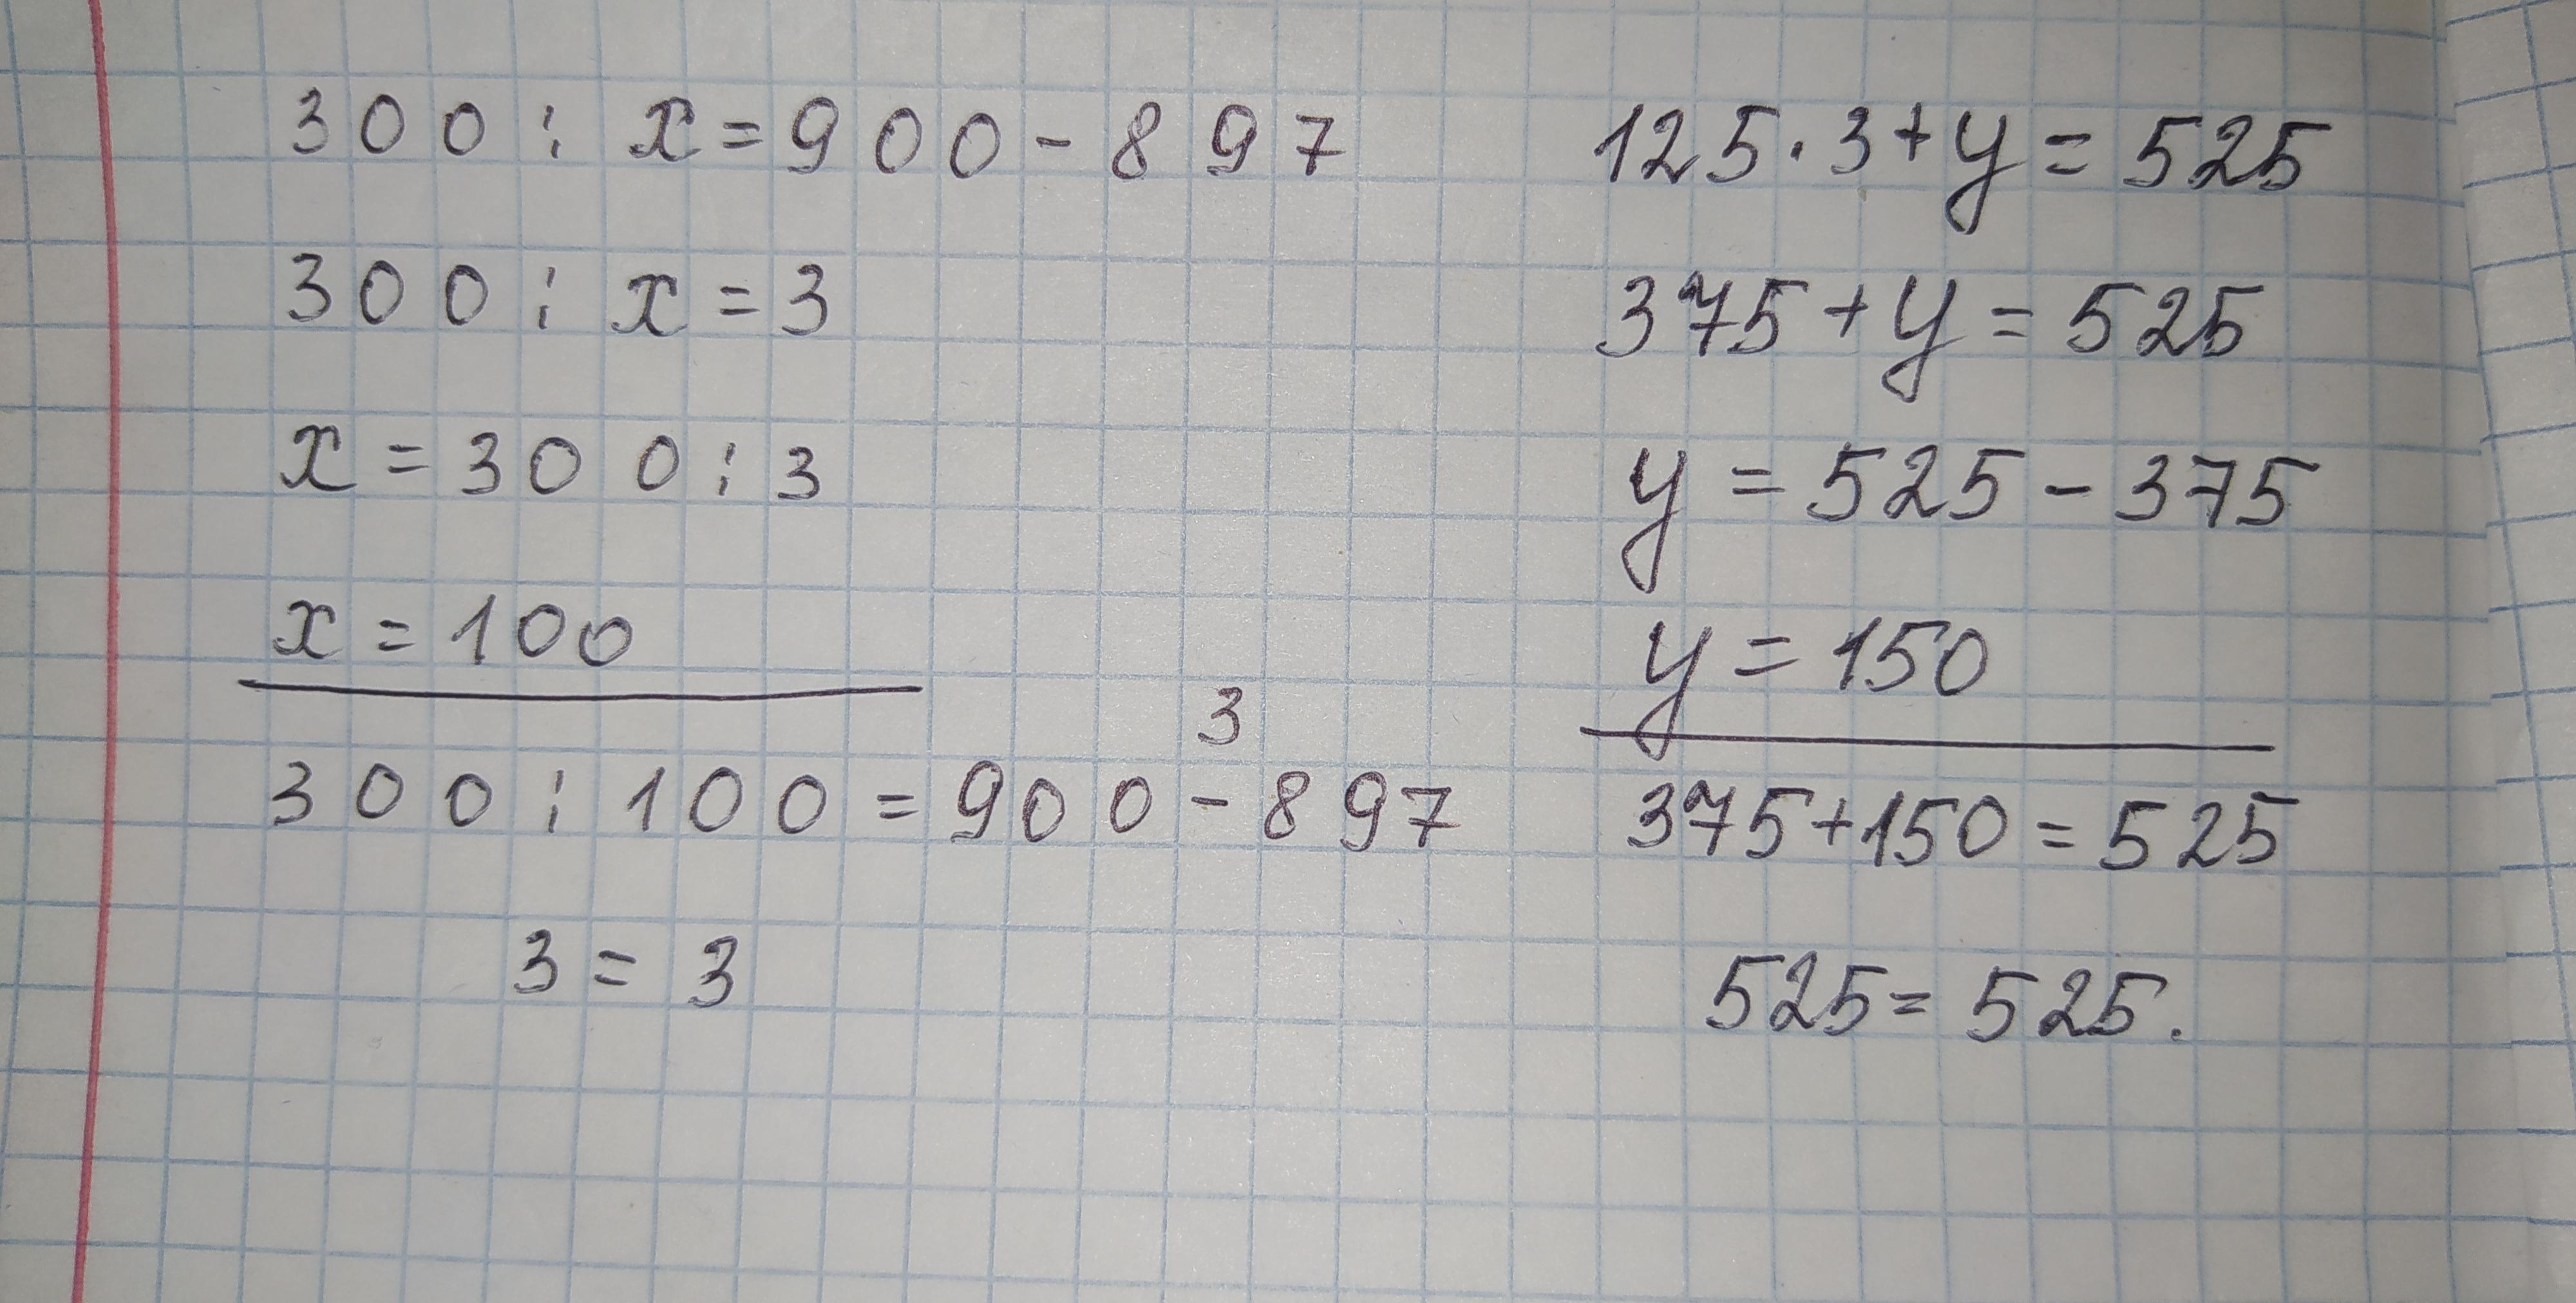 300 : x = 900 - 897
300 : x = 3
x = 300 : 3
x = 100
3
300 : 100 = 900 - 897
3 = 3
125 · 3 + y = 525
375 + y = 525
y = 525 - 375
y = 150
375 + 150 = 525
525 = 525.